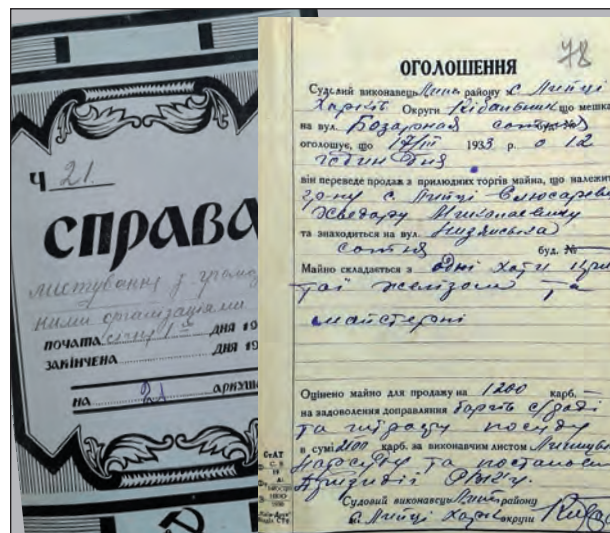 Ч 21.
СПРАВА
листування з громад
ними організаціями
ПОЧАТА січня 1 го ДНЯ 19
ЗАКІНЧЕНА ДНЯ 19
НА 21 аркуш
78
ОГОЛОШЕННЯ
Судовий виконавець Лип. району с Липці
Харків Округи що мешка
на вул. Базарная сотня буд. №
оголошує, що 17/III 1933 р. о 12
годин дня
він переведе продаж з прилюдних торгів майна, що належить
гр-ну с. Липці Слюсарев
Хведару Миколаевичу
та знаходиться на вул.
сотня буд. №
Майно складається з одні хати кри
тої желізом та
майстерні
Оцінено майно для продажу на 1200 карб.
на задоволення доправляння боргів с/раді
та штрафу посуду
в сумі 2100 карб. за виконавчим листом Липців
Нарсуду та постанови
Президії
Судовий виконавець Лип району
с. Липці Харк округи